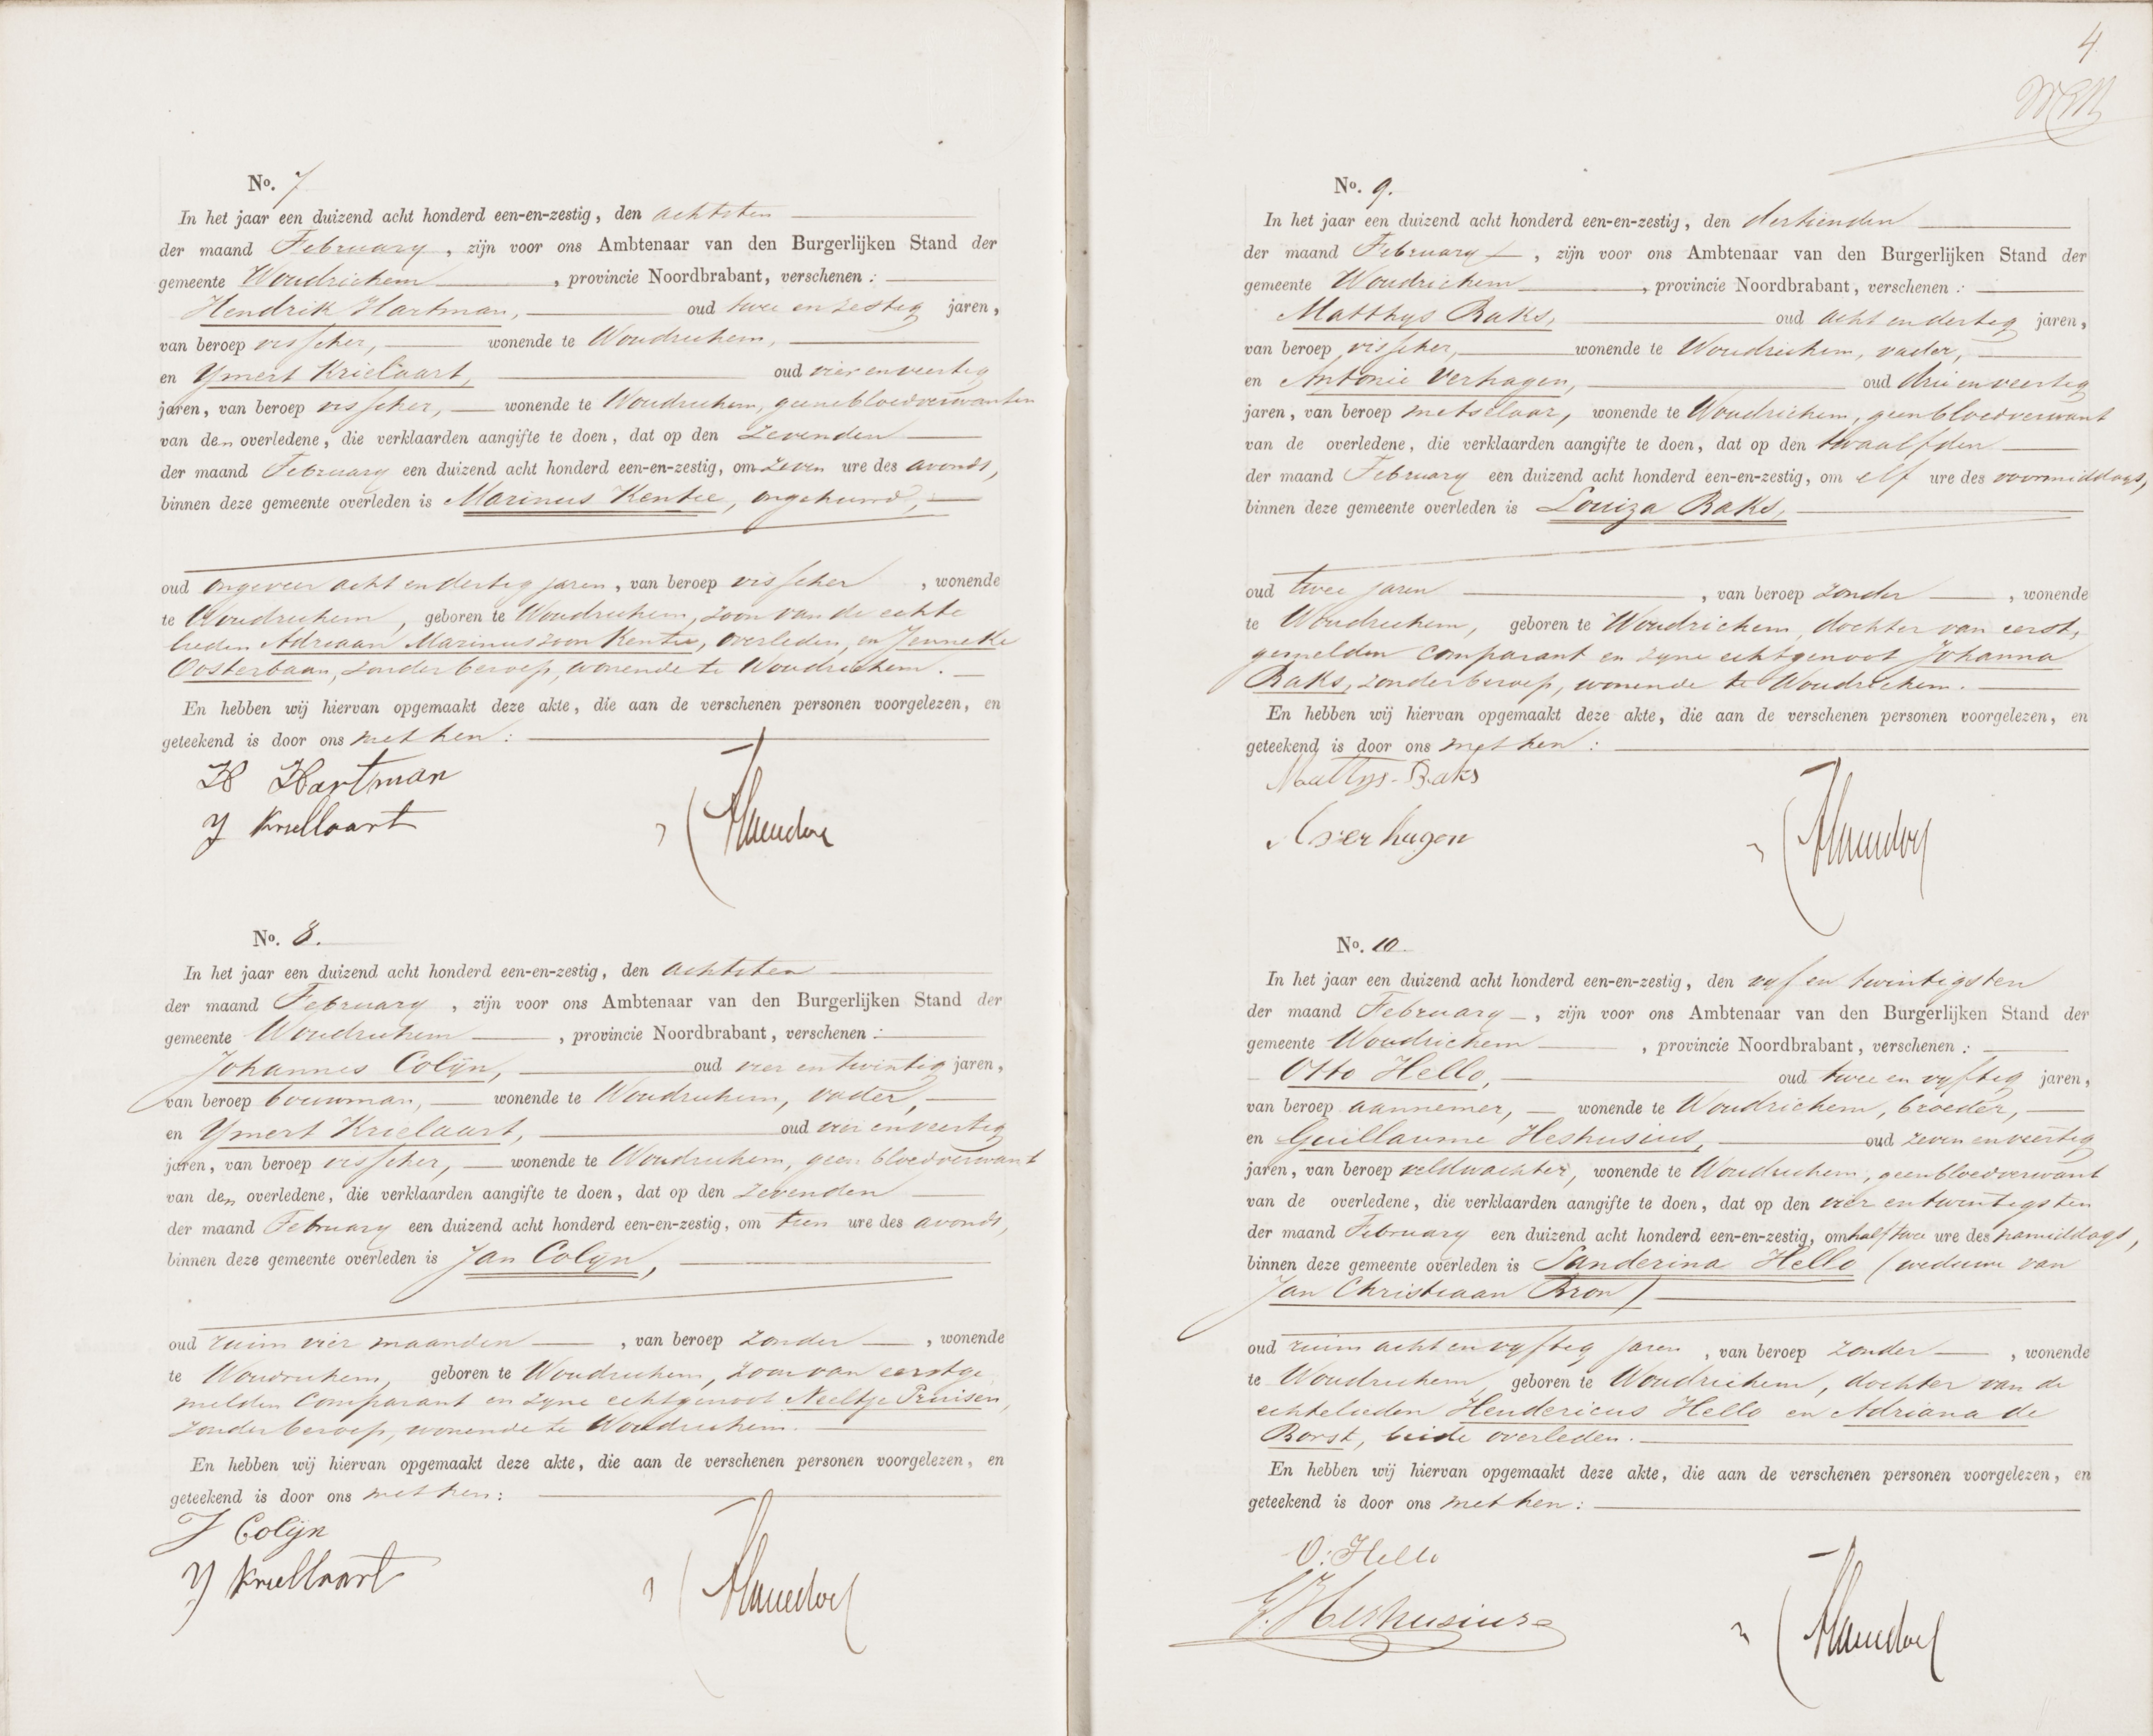 No. 7
In het jaar een duizend acht honderd een-en-zestig, den achtsten
der maand February, zijn voor ons Ambtenaar van den Burgerlijken Stand der
gemeente Woudrichem, provincie Noordbrabant, verschenen:
Hendrik Hartman, oud twee en zestig jaren,
van beroep visscher, wonende te Woudrichem,
en Ymert Krielaart, oud vier en veertig
jaren, van beroep visscher, wonende te Woudrichem, geene bloedverwanten
van den overledene, die verklaarden aangifte te doen, dat op den zevenden
der maand February een duizend acht honderd een-en-zestig, om zeven ure des avonds,
binnen deze gemeente overleden is Marinus Kentie, ongehuwd,
oud ongeveer acht en dertig jaren, van beroep visscher, wonende
te Woudrichem, geboren te Woudrichem, zoon van de echte
lieden Adriaan Marinuszoon Kentie, overleden, en Jenneke
Oosterbaan, zonder beroep, wonende te Woudrichem.
En hebben wij hiervan opgemaakt deze akte, die aan de verschenen personen voorgelezen, en
geteekend is door ons met hen:
H Hartman
Y Krellaart
No. 8.
In het jaar een duizend acht honderd een-en-zestig, den achtsten
der maand February, zijn voor ons Ambtenaar van den Burgerlijken Stand der
gemeente Woudrichem, provincie Noordbrabant, verschenen:
Johannes Colijn, oud vier en twintig jaren,
van beroep bouwman, wonende te Woudrichem, vader,
en Ymert Krielaart, oud vier en veertig
jaren, van beroep visscher, wonende te Woudrichem, geen bloedverwant
van den overledene, die verklaarden aangifte te doen, dat op den zevenden
der maand February een duizend acht honderd een-en-zestig, om tien ure des avonds,
binnen deze gemeente overleden is Jan Colijn,
oud ruim vier maanden, van beroep zonder, wonende
te Woudrichem, geboren te Woudrichem, zoon van eerstge
melden Comparant en zyne echtgenoot Neeltje Pruisen,
zonder beroep, wonende te Woudrichem.
En hebben wij hiervan opgemaakt deze akte, die aan de verschenen personen voorgelezen, en
geteekend is door ons met hen:
J Colijn
Y Krellaart
4
No. 9.
In het jaar een duizend acht honderd een-en-zestig, den dertienden
der maand February, zijn voor ons Ambtenaar van den Burgerlijken Stand der
gemeente Woudrichem, provincie Noordbrabant, verschenen:
Matthys Raks, oud acht en dertig jaren,
van beroep visscher, wonende te Woudrichem, vader,
en Antonie Verhagen, oud drie en veertig
jaren, van beroep metselaar, wonende te Woudrichem, geen bloedverwant
van de overledene, die verklaarden aangifte te doen, dat op den twaalfden
der maand February een duizend acht honderd een-en-zestig, om elf ure des voormiddags,
binnen deze gemeente overleden is Louiza Raks,
oud twee jaren, van beroep zonder, wonende
te Woudrichem, geboren te Woudrichem, dochter van eerst,
gemelden comparant en zyne echtgenoot Johanna
Raks, zonder beroep, wonende te Woudrichem.
En hebben wij hiervan opgemaakt deze akte, die aan de verschenen personen voorgelezen, en
geteekend is door ons met hen:
Mattys Raks
A verhagen
No. 10
In het jaar een duizend acht honderd een-en-zestig, den vyf en twintigsten
der maand February, zijn voor ons Ambtenaar van den Burgerlijken Stand der
gemeente Woudrichem, provincie Noordbrabant, verschenen:
Otto Hello, oud twee en vyftig jaren,
van beroep aannemer, wonende te Woudrichem, broeder,
en Guillaume Heshusius, oud zeven en veertig
jaren, van beroep veldwachter, wonende te Woudrichem, geen bloedverwant
van de overledene, die verklaarden aangifte te doen, dat op den vier en twintigsten
der maand February een duizend acht honderd een-en-zestig, om half twee ure des namiddags,
binnen deze gemeente overleden is Sanderina Hello (weduwe van
Jan Christiaan Bron)
oud ruim acht en vyftig jaren, van beroep zonder, wonende
te Woudrichem, geboren te Woudrichem, dochter van de
echtelieden Hendericus Hello en Adriana de
Borst, beide overleden.
En hebben wij hiervan opgemaakt deze akte, die aan de verschenen personen voorgelezen, en
geteekend is door ons met hen:
O: Hello
G. Heshusius